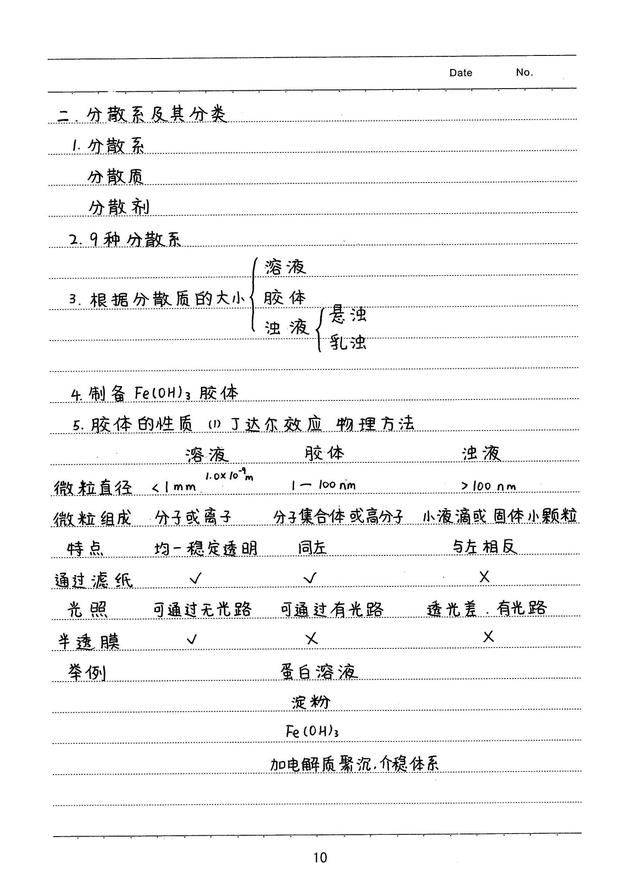 Date No.
二.分散系及其分类
1.分散系
分散质
分散剂
2.9种分散系
3.根据分散质的大小{溶液
胶体
浊液{悬浊
乳浊
4.制备Fe(OH)3胶体
5.胶体的性质 (1)丁达尔效应 物理方法
溶液 胶体 浊液
微粒直径 <1mm 1.0×10⁻⁹m 1—100nm >100nm
微粒组成 分子或离子 分子集合体或高分子 小液滴或固体小颗粒
特点 均一稳定透明 同左 与左相反
通过滤纸 ✓ ✓ ✗
光照 可通过无光路 可通过有光路 透光差.有光路
半透膜 ✓ ✗ ✗
举例 蛋白溶液
淀粉
Fe(OH)3
加电解质聚沉,介稳体系
10